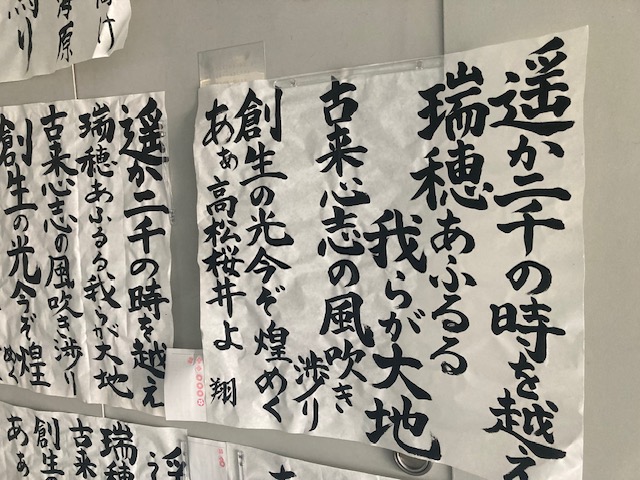 遥か二千の時を越え
瑞穂あふるる
我らが大地
古来心志の風吹き
渉り
創生の光今ぞ煌めく
あぁ高松桜井よ 翔
遥か二千の時を越え
瑞穂あふるる我らが大地
古来心志の風吹き渉り
創生の光今ぞ煌
めく
け
原
り
遥
瑞穂
古来
創生の
あぁ